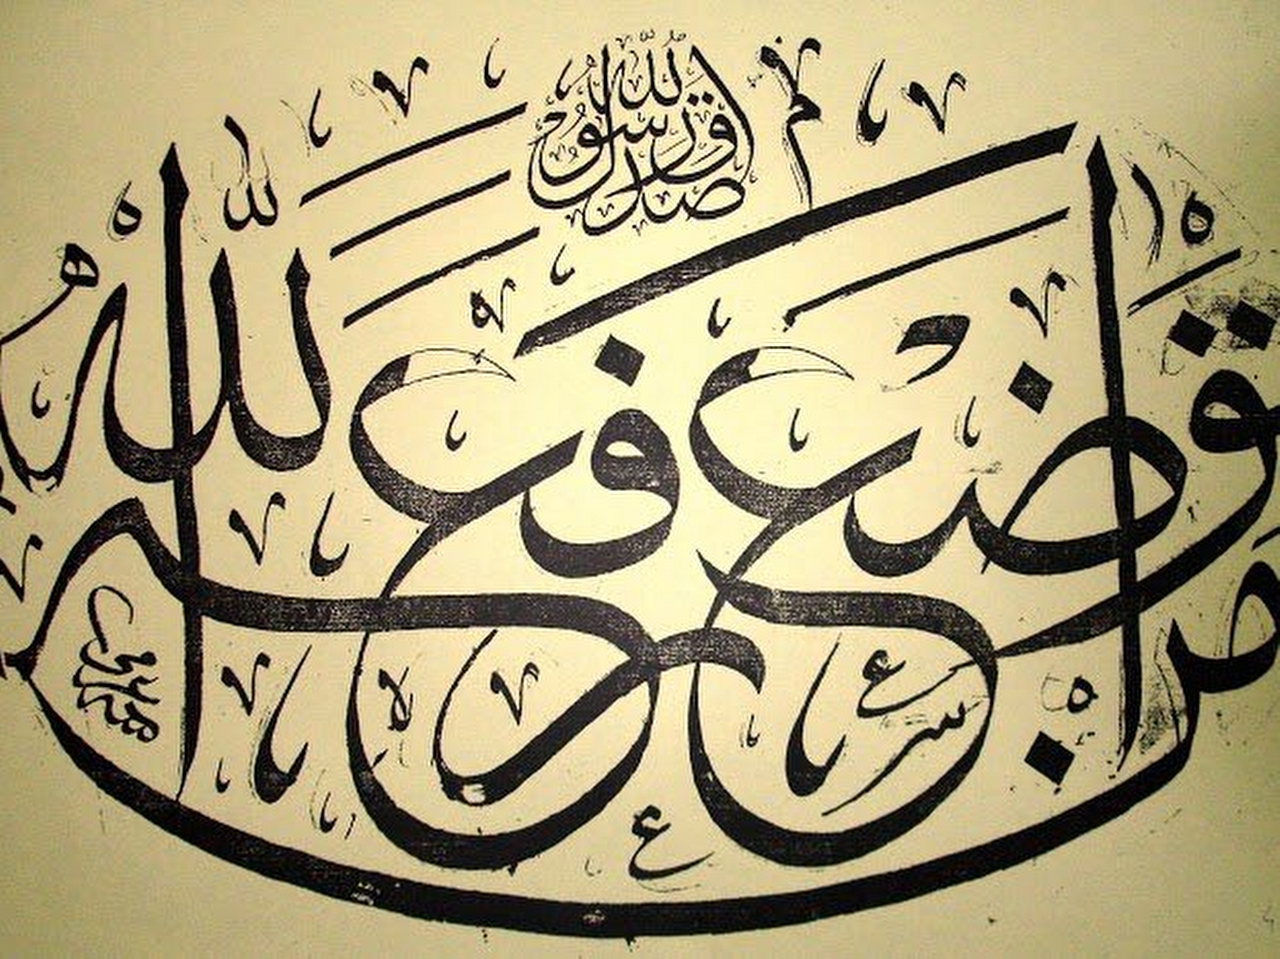 صدق رسول الله
من تواضع لله رفعه الله